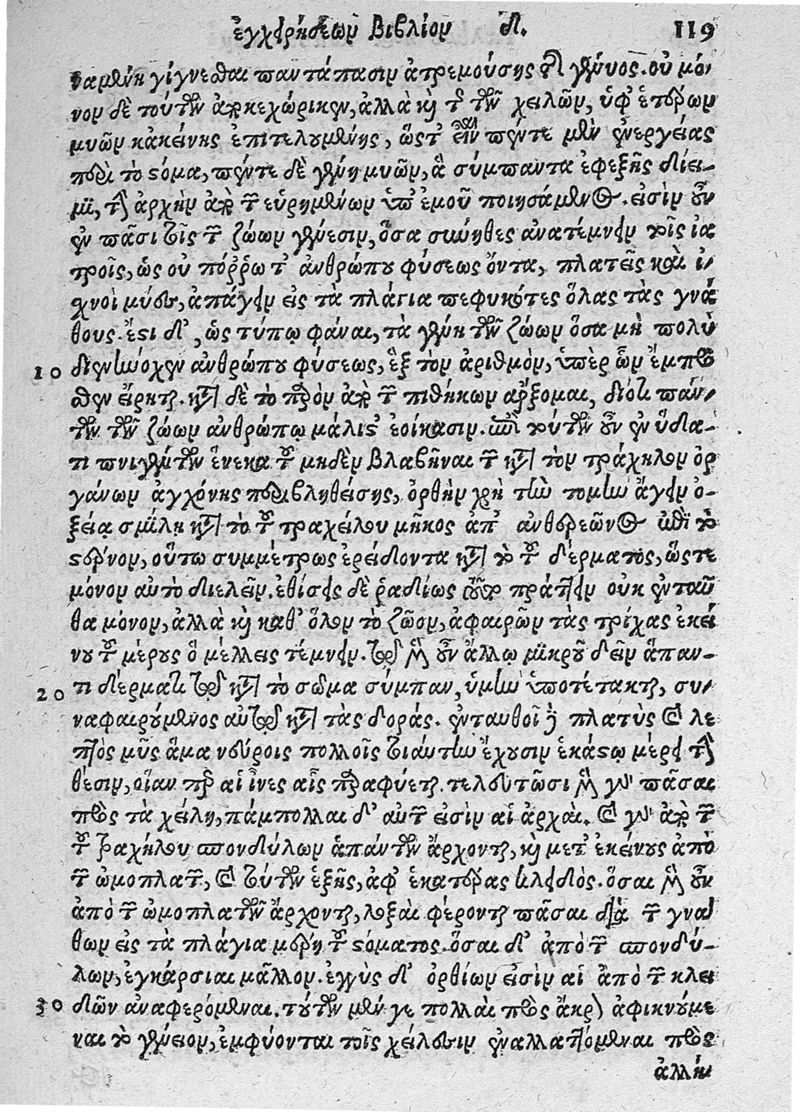 ἐγχειρήσεων Βιβλίον δ. 119
ναμένη γίγνεσθαι παντάπασιν ἀτρεμούσης τῆς γένυος. οὐ μό-
νον δὲ τούτων ἀποκεχώρικεν, ἀλλὰ καὶ τῆς τῶν χειλῶν, ὑφ' ἑτέρων
μυῶν κἀκείνης ἐπιτελουμένης, ὥστ' εἶναι πέντε μὲν ἐνεργείας
περὶ τὸ στόμα, πέντε δὲ γένη μυῶν, ἃ σύμπαντα ἐφεξῆς δίει-
μι, τὴν ἀρχὴν ἀπὸ τῶν εὑρημένων ὑπ' ἐμοῦ ποιησάμενος. εἰσὶν οὖν
ἐν πᾶσι τοῖς τῶν ζώων γένεσιν, ὅσα σύνηθες ἀνατέμνειν τοῖς ἰα
τροῖς, ὡς οὐ πόῤῥω τ' ἀνθρώπου φύσεως ὄντα, πλατεῖς καὶ ἰ-
σχνοὶ μύες, ἀπάγειν εἰς τὰ πλάγια πεφυκότες ὅλας τὰς γνά
θους. ἔστι δ', ὡς τύπῳ φάναι, τὰ γένη τῶν ζώων ὅσα μὴ πολὺ
10 διενήνοχεν ἀνθρώπου φύσεως, ἓξ τὸν ἀριθμὸν, ὑπὲρ ὧν ἔμπρο
σθεν εἴρηται. κατὰ δὲ τὸ παρὸν ἀπὸ τῶν πιθήκων ἄρξομαι, διότι πάν-
των τῶν ζώων ἀνθρώπῳ μάλιστ' ἐοίκασιν. ἐπὶ τούτων οὖν ἐν ὕδα-
τι πνιγέντων ἕνεκα τοῦ μηδὲν βλαβῆναι τῶν κατὰ τὸν τράχηλον ὀρ
γάνων ἀγχόνης περιβληθείσης, ὀρθὴν χρὴ τὴν τομὴν ἄγειν ὀ-
ξείᾳ σμίλῃ κατὰ τὸ τοῦ τραχείλου μῆκος ἀπ' ἀνθερεῶνος ἐπὶ τὸ
στέρνον, οὕτω συμμέτρως ἐρείδοντα κατὰ τὸ τοῦ δέρματος, ὥστε
μόνον αὐτὸ διελεῖν. ἐθίσεις δὲ ῥαδίως τοῦτο πράττειν οὐκ ἐνταῦ
θα μόνον, ἀλλὰ καὶ καθ' ὅλον τὸ ζῶον, ἀφαιρῶν τὰς τρίχας ἐκεί
νου τοῦ μέρους ὃ μέλλεις τέμνειν. τῷ μὲν οὖν ἄλλῳ μικροῦ δεῖν ἅπαν-
20 τι δέρματι τῷ κατὰ τὸ σῶμα σύμπαν, ὑμὴν ὑποτέτακται, συ-
ναφαιρούμενος αὐτῷ κατὰ τὰς δοράς. ἐνταυθοῖ δὲ πλατὺς καὶ λε
πτὸς μῦς ἅμα νεύροις πολλοῖς τοιαύτην ἔχουσιν ἑκάστῳ μέρει τὴν
θέσιν, οἵαν περ αἱ ἶνες αἷς παραφύεται. τελευτῶσι μὲν γὰρ πᾶσαι
πρὸς τὰ χείλη, πάμπολλαι δ' αὐτῶν εἰσὶν αἱ ἀρχαὶ. καὶ γὰρ ἀπὸ τῶν
τοῦ τραχήλου σπονδύλων ἁπάντων ἄρχονται, καὶ μετ' ἐκείνους ἀπὸ
τῶν ὠμοπλατῶν, καὶ τούτων ἑξῆς, ἀφ' ἑκατέρας κλειδὸς. ὅσαι μὲν οὖν
ἀπὸ τῶν ὠμοπλατῶν ἄρχονται, λοξαὶ φέρονται πᾶσαι διὰ τῶν γνά
θων εἰς τὰ πλάγια μέρη τοῦ στόματος. ὅσαι δ' ἀπὸ τῶν σπονδύ-
λων, ἐγκάρσιαι μᾶλλον. ἐγγὺς δ' ὀρθίων εἰσὶν αἱ ἀπὸ τῶν κλει
30 δῶν ἀναφερόμεναι. τούτων μέν γε πολλαὶ πρὸς ἄκρον ἀφικνούμε
ναι τὸ γένειον, ἐμφύονται τοῖς χείλεσιν ἐναλλαττόμεναι πρὸς
ἀλλή